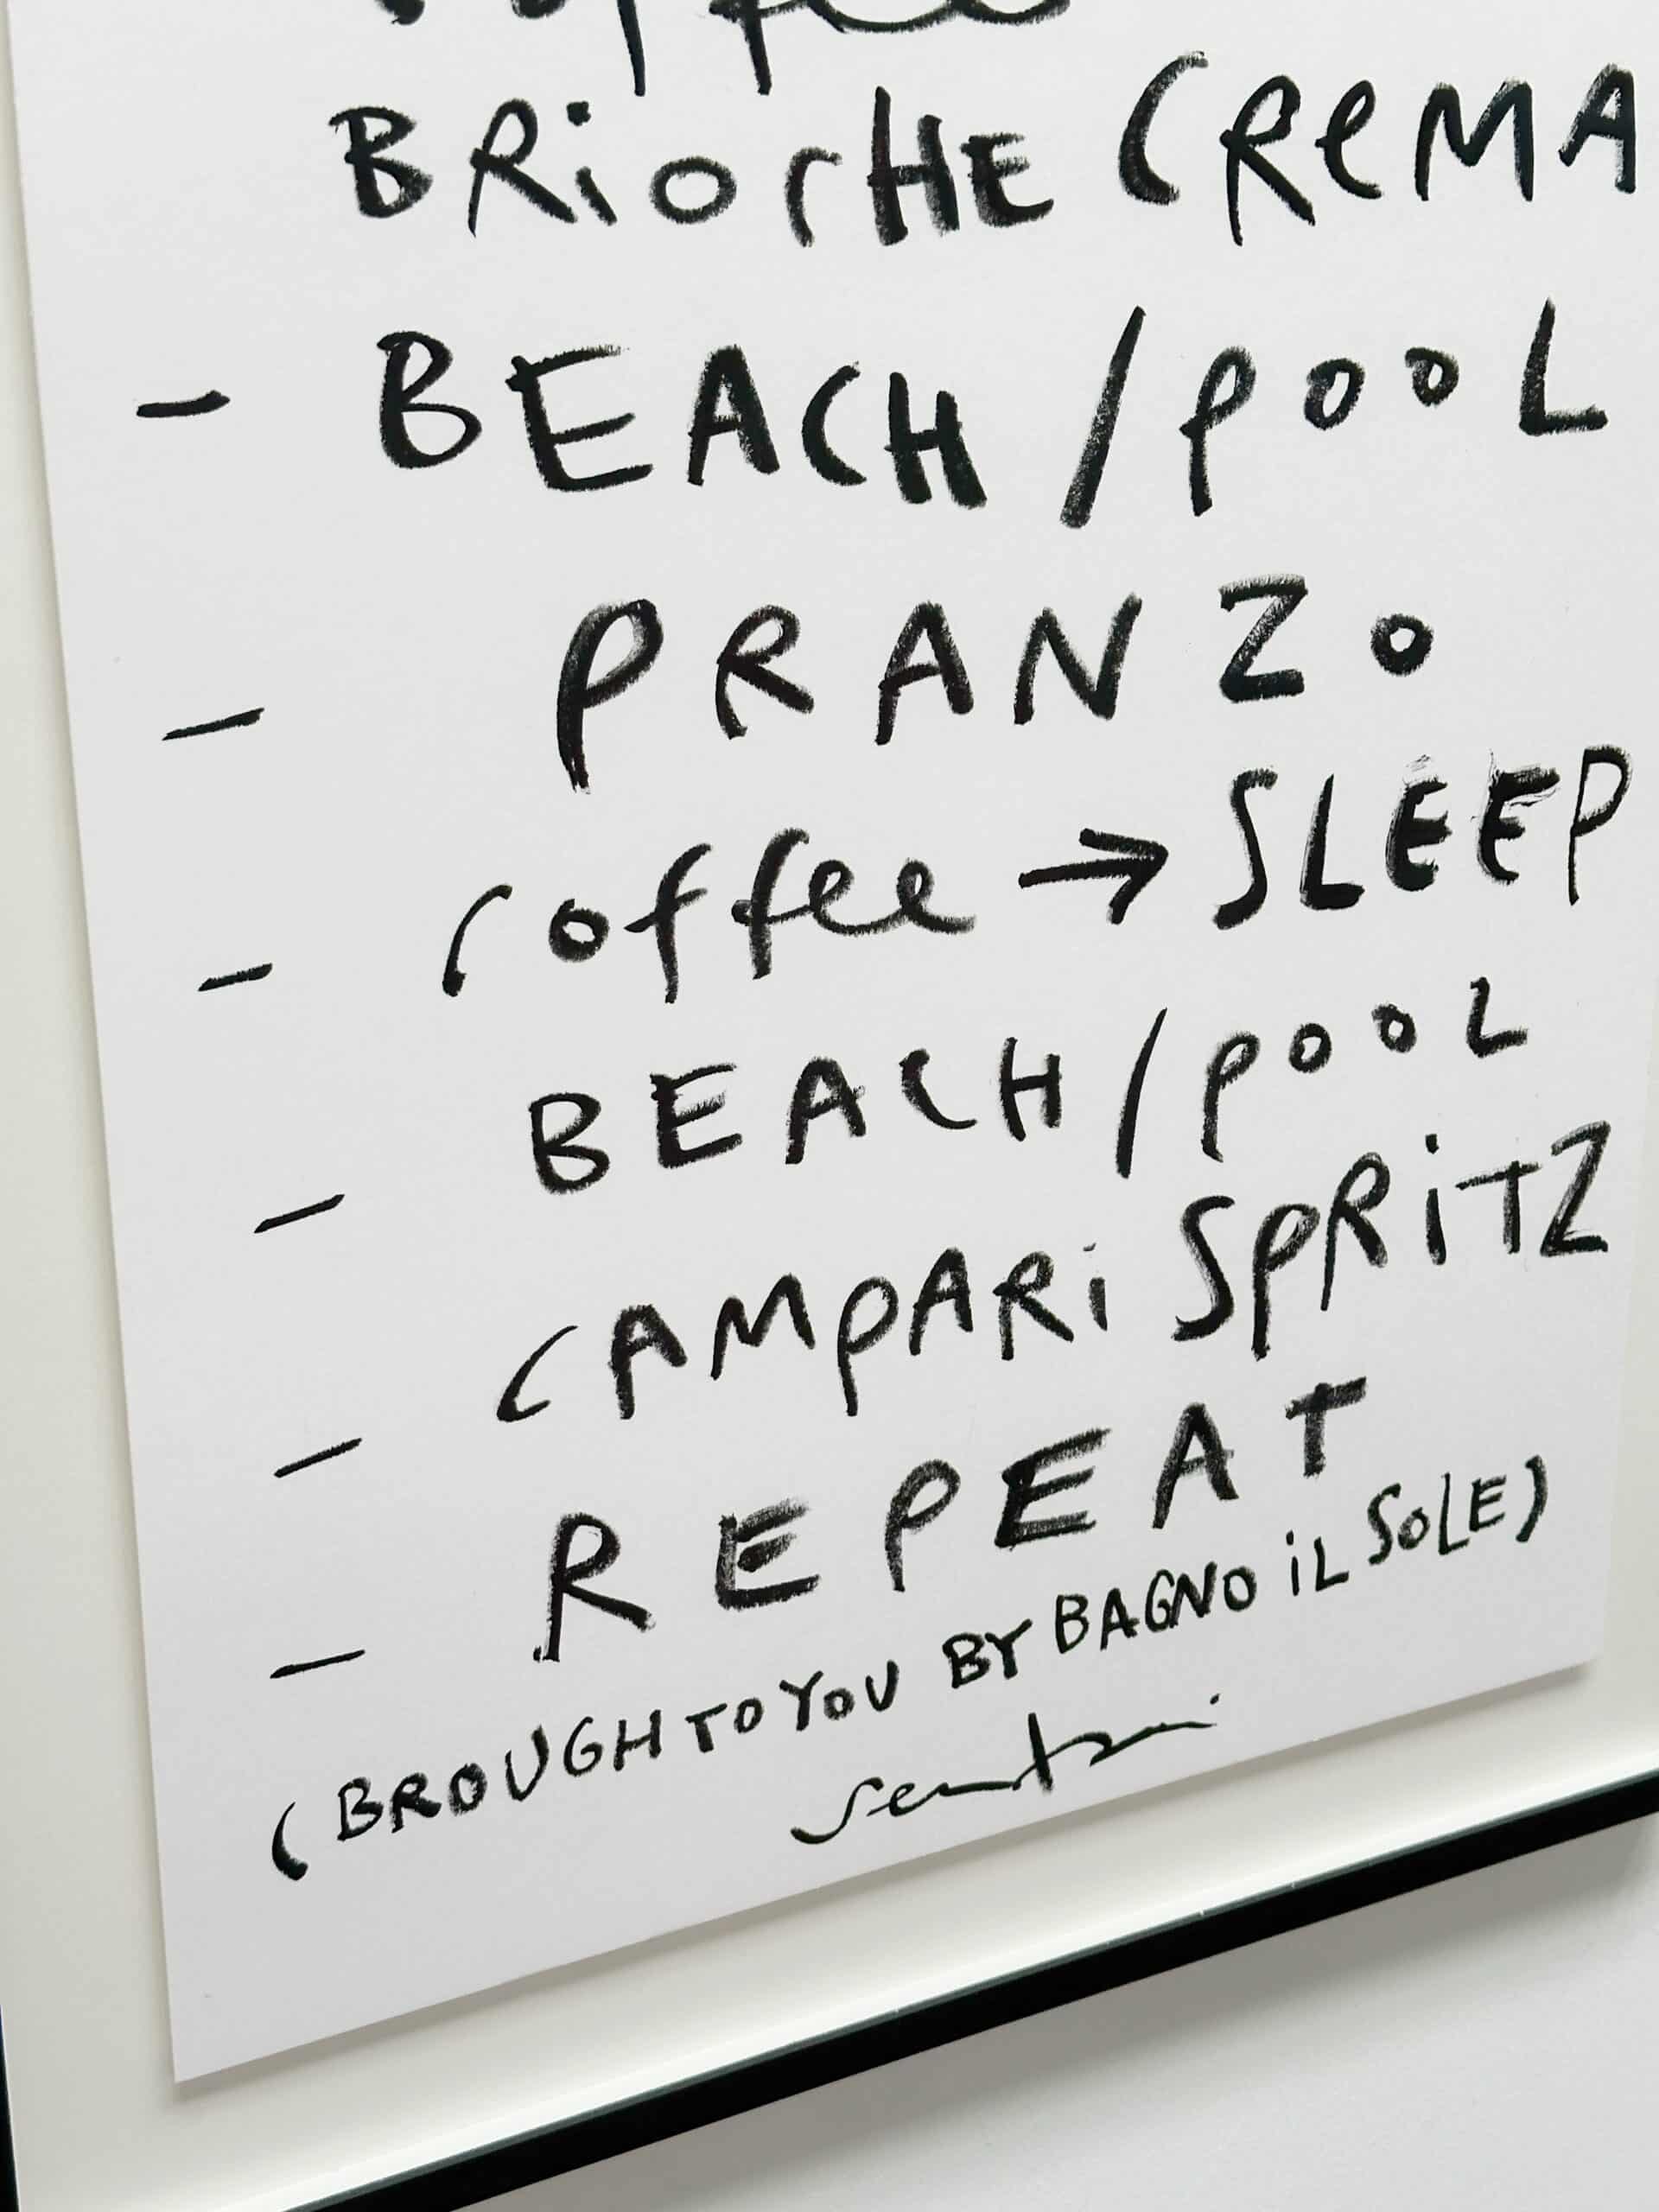 coffee
BRiOCHE CREMA
- BEACH / POOL
- PRANZO
- coffee → SLEEP
- BEACH / POOL
- CAMPARi SPRiTZ
- REPEAT
(BROUGH TO YOU BY BAGNO iL SOLE)